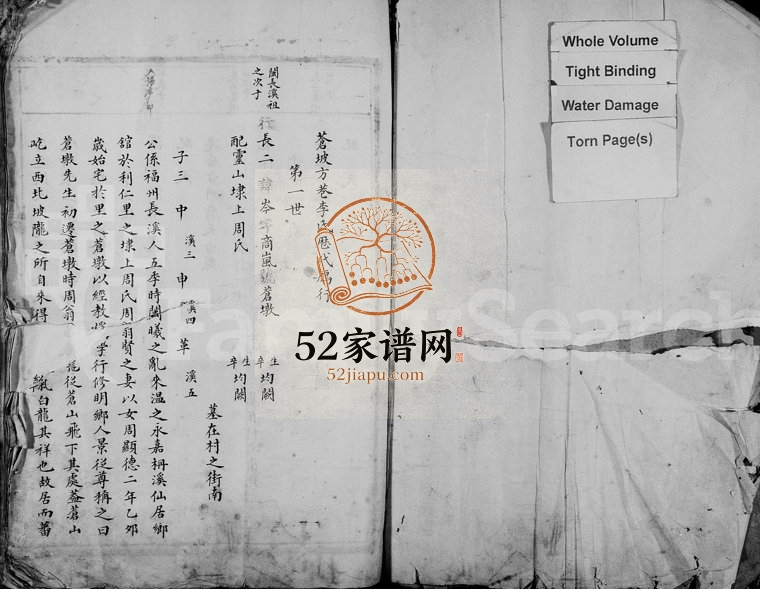 Whole Volume
Tight Binding
Water Damage
Torn Page(s)
蒼坡方巷李氏歷代
行
第一世
閩長溪祖
之次子
行長二
岑
商嵐號蒼墩
生
卒
均闕
配靈山埭上周氏
生
卒
均闕
墓在村之街南
子三
申
溪三
申
溪四
革
溪五
公係福州長溪人五季時閩曦之亂來溫之永嘉楠溪仙居鄉
舘於利仁里之埭上周氏周翁賢之妻以女周顯德二年乙夘
歲始宅於里之蒼墩以經教
學行修明鄉人景從尊稱之曰
蒼墩先生初遷蒼墩時周翁
從蒼山飛下其處蓋蒼山
屹立西北坡隴之所自來得
白龍其祥也故居而蕃
52家谱网
52jiapu.com
FamilySearch